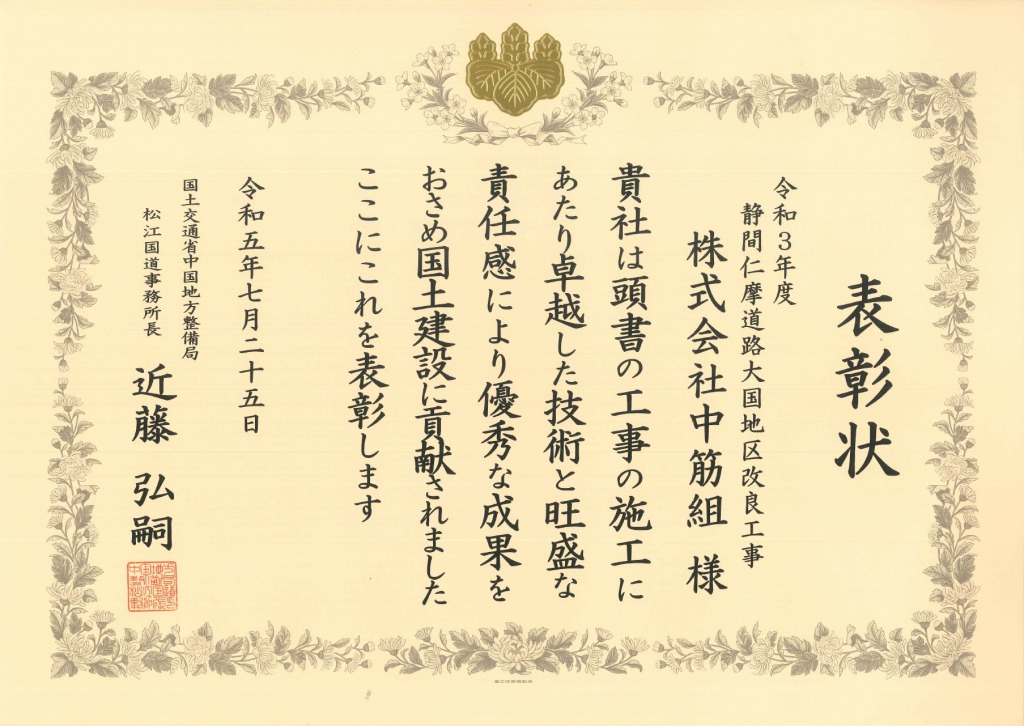 表彰状
令和３年度
静間仁摩道路大国地区改良工事
株式会社中筋組 様
貴社は頭書の工事の施工に
あたり卓越した技術と旺盛な
責任感により優秀な成果を
おさめ国土建設に貢献されました
ここにこれを表彰します
令和五年七月二十五日
国土交通省中国地方整備局
松江国道事務所長
近藤 弘嗣